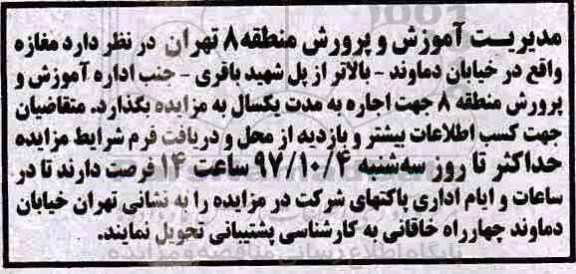 مدیریت آموزش و پرورش منطقه ۸ تهران در نظر دارد مغازه
واقع در خیابان دماوند - بالاتر از پل شهید باقری - جنب اداره آموزش و
پرورش منطقه ۸ جهت اجاره به مدت یکسال به مزایده بگذارد. متقاضیان
جهت کسب اطلاعات بیشتر و بازدید از محل و دریافت فرم شرایط مزایده
حداکثر تا روز سه‌شنبه ۹۷/۱۰/۴ ساعت ۱۴ فرصت دارند تا در
ساعات و ایام اداری پاکتهای شرکت در مزایده را به نشانی تهران خیابان
دماوند چهارراه خاقانی به کارشناسی پشتیبانی تحویل نمایند.
پایگاه اطلاع رسانی مناقصه و مزایده